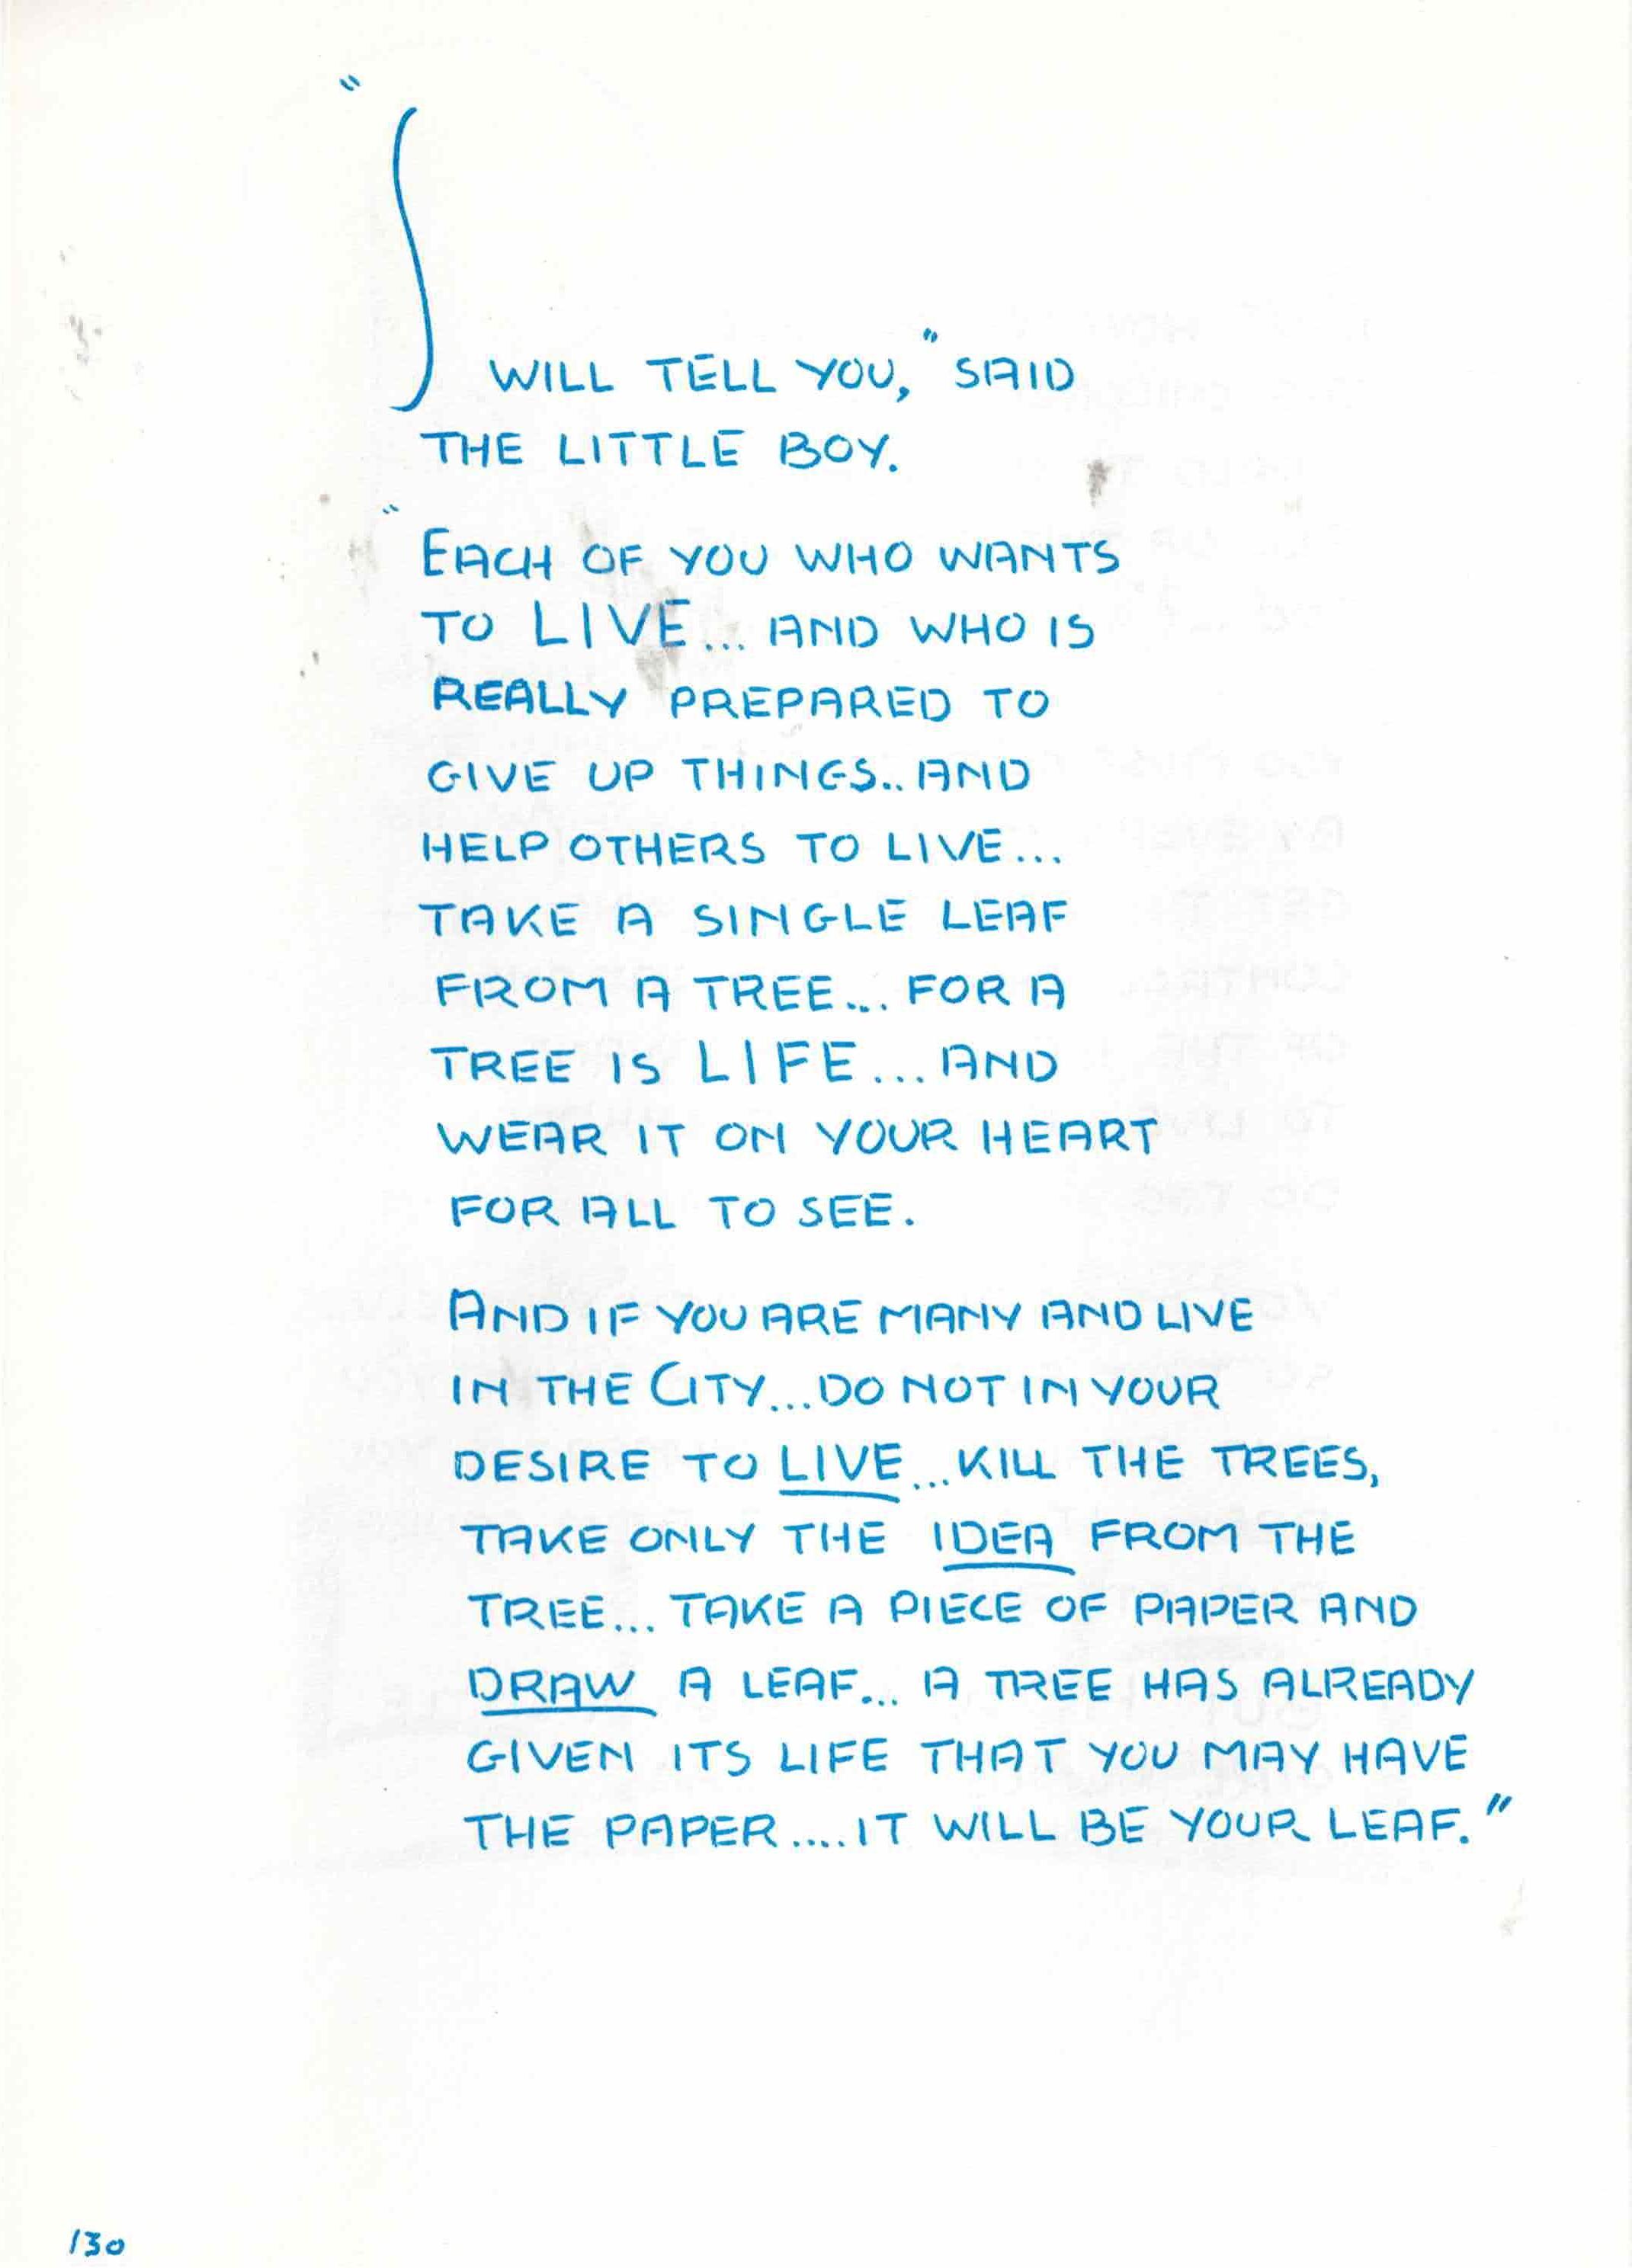 "I WILL TELL YOU," SAID
THE LITTLE BOY.
"EACH OF YOU WHO WANTS
TO LIVE... AND WHO IS
REALLY PREPARED TO
GIVE UP THINGS.. AND
HELP OTHERS TO LIVE...
TAKE A SINGLE LEAF
FROM A TREE... FOR A
TREE IS LIFE... AND
WEAR IT ON YOUR HEART
FOR ALL TO SEE.
AND IF YOU ARE MANY AND LIVE
IN THE CITY... DO NOT IN YOUR
DESIRE TO LIVE... KILL THE TREES,
TAKE ONLY THE IDEA FROM THE
TREE... TAKE A PIECE OF PAPER AND
DRAW A LEAF... A TREE HAS ALREADY
GIVEN ITS LIFE THAT YOU MAY HAVE
THE PAPER.... IT WILL BE YOUR LEAF."
130